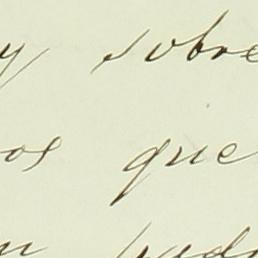 y sobre
os que